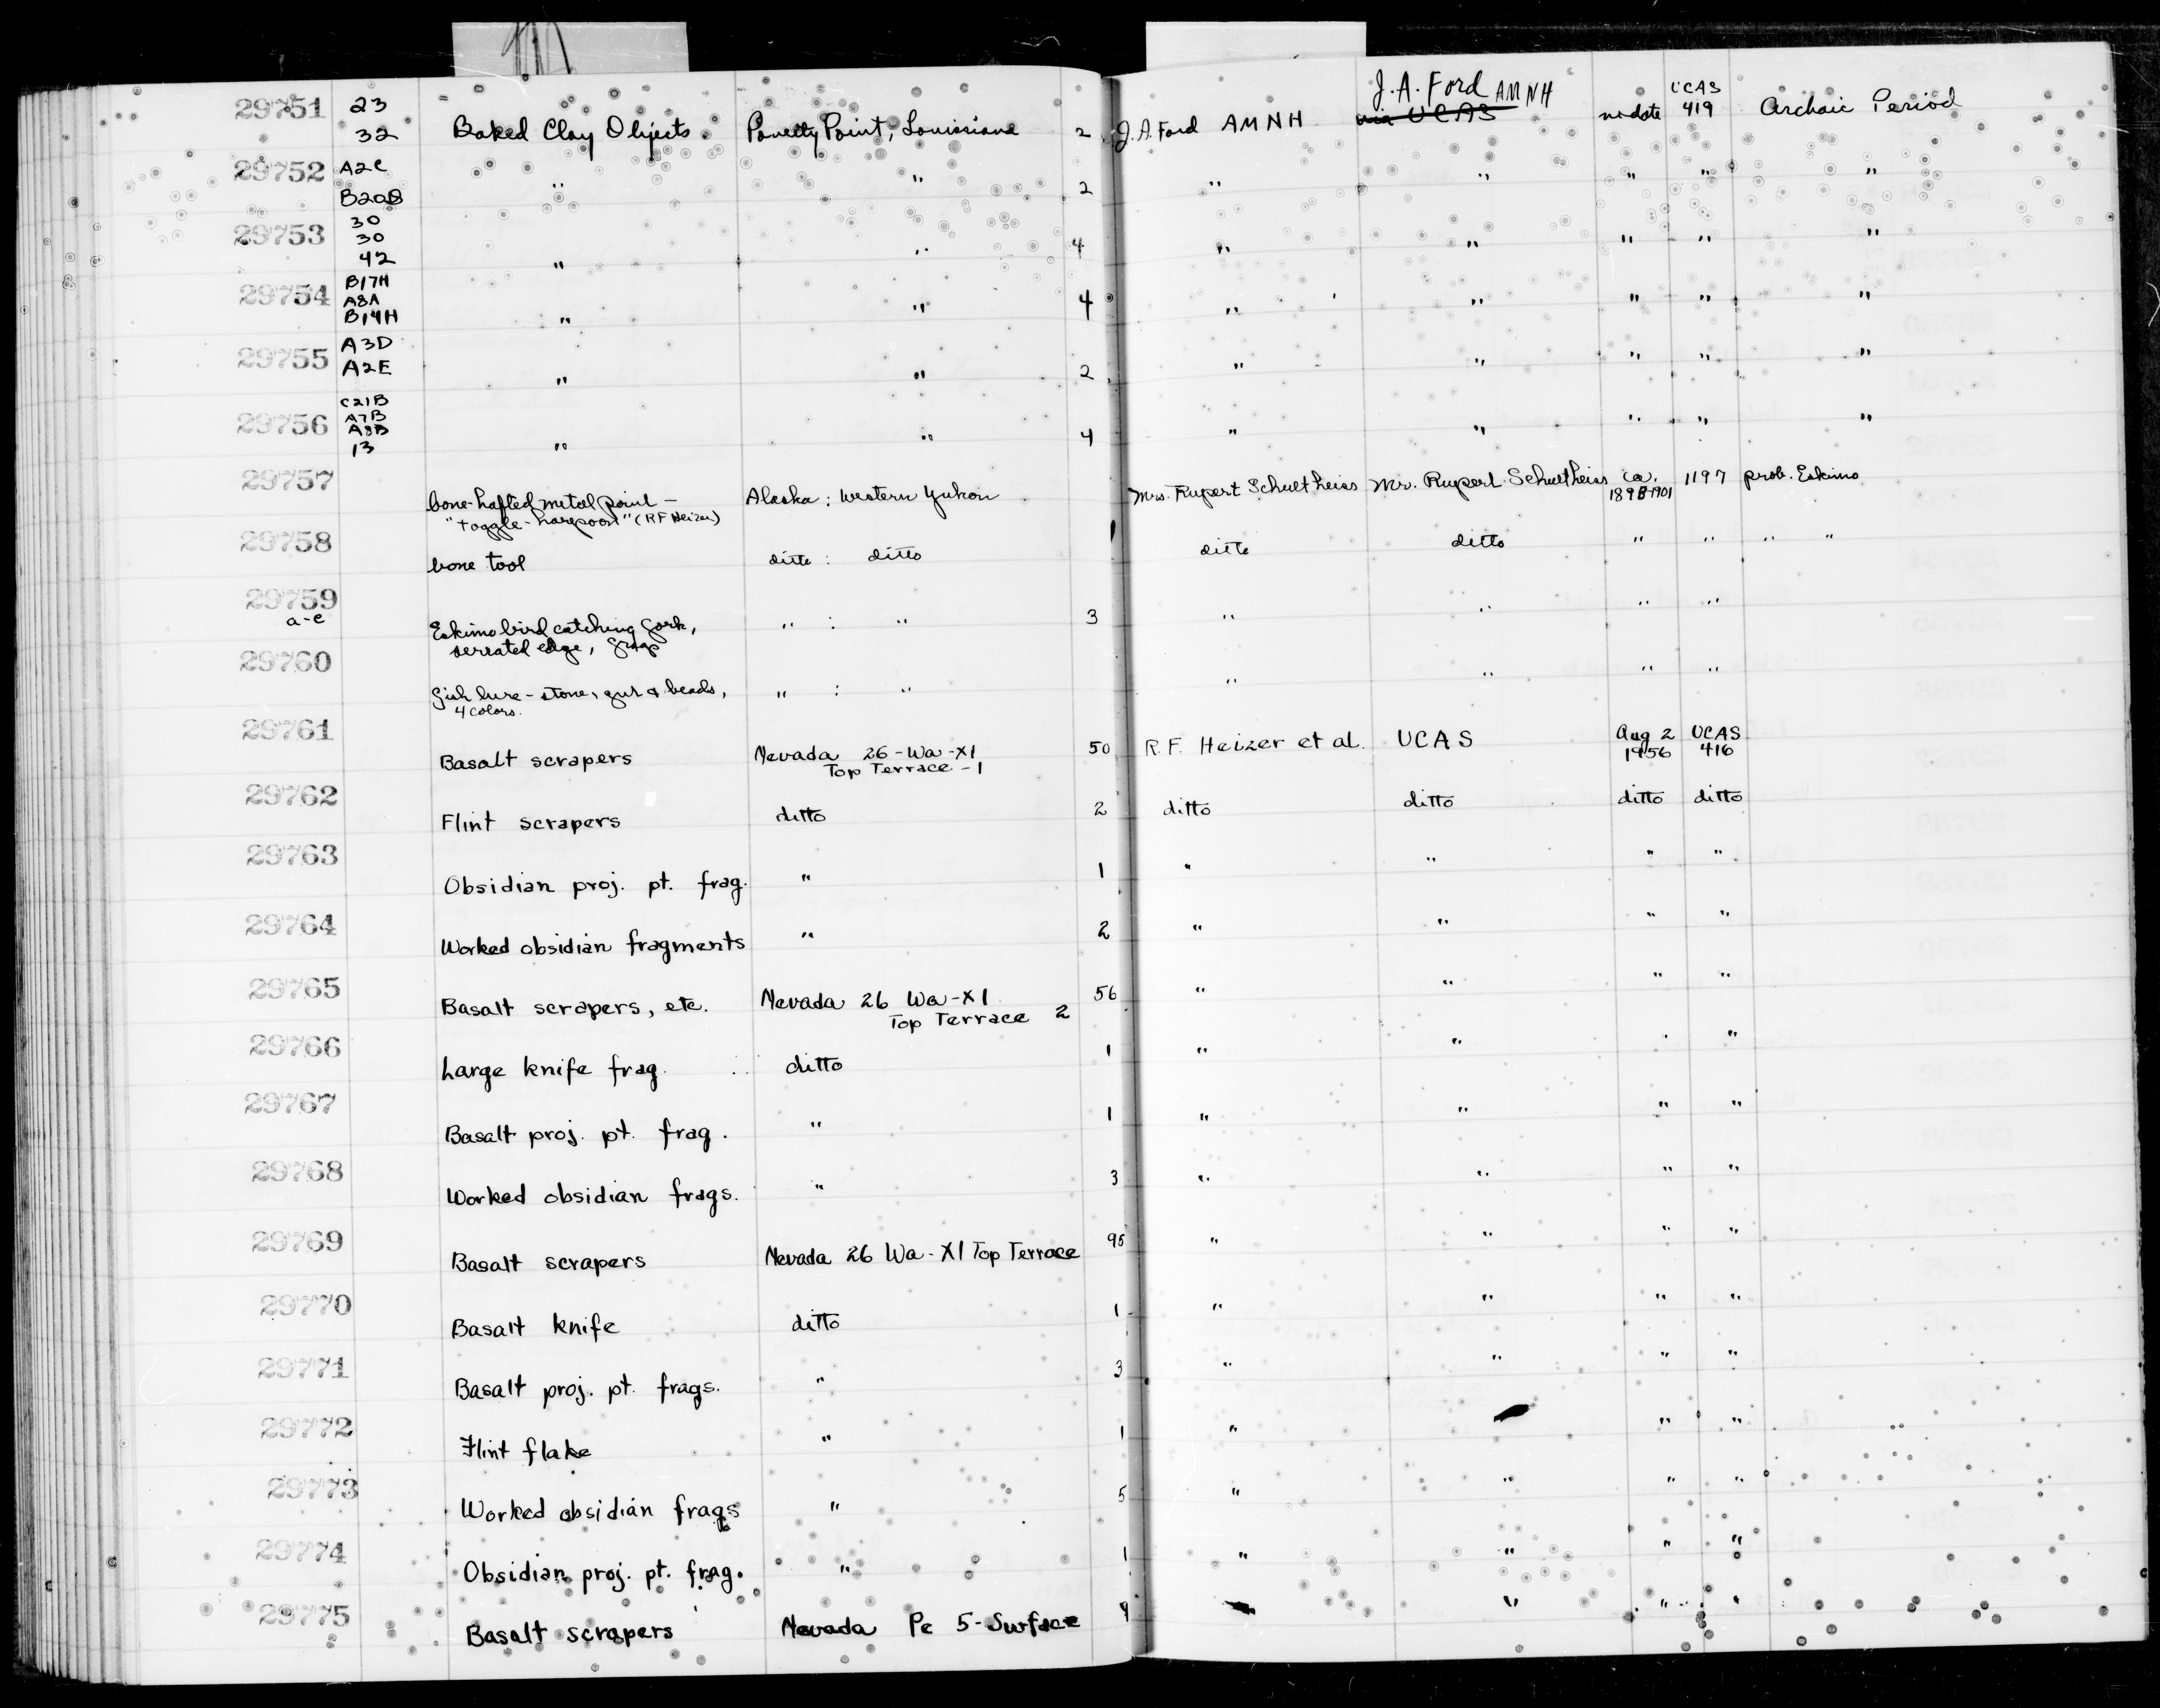 29751 23 32 Baked Clay Objects Poverty Point, Louisiana 2 J.A. Ford AMNH J.A. Ford AMNH via UCAS no date UCAS 419 Archaic Period
29752 A2C B20B " " 2 " " " " "
29753 30 30 42 " " 4 " " " " "
29754 B17H A8A B14H " " 4 " " " " "
29755 A3D A2E " " 2 " " " " "
29756 C21B A7B A8B 13 " " 4 " " " " "
29757 bone-hafted metal point — Alaska: Western Yukon Mrs. Rupert Schultheiss Mr. Rupert Schultheiss ca. 1898-1901 1197 prob. Eskimo
"toggle-harpoon" (RF Heizer)
29758 bone tool ditto : ditto 1 ditto ditto " " " "
29759 a-e Eskimo bird catching fork, " : " 3 " " " "
serrated edge, frags
29760 fish lure - stone, gut & beads, " : " " " " "
4 colors.
29761 Basalt scrapers Nevada 26-Wa-X1 50 R.F. Heizer et al. UCAS Aug 2 1956 UCAS 416
Top Terrace-1
29762 Flint scrapers ditto 2 ditto ditto ditto ditto
29763 Obsidian proj. pt. frag. " 1 " " " "
29764 Worked obsidian fragments " 2 " " " "
29765 Basalt scrapers, etc. Nevada 26 Wa-X1 56 " " " "
Top Terrace 2
29766 Large knife frag. ditto 1 " " " "
29767 Basalt proj. pt. frag. " 1 " " " "
29768 Worked obsidian frags. " 3 " " " "
29769 Basalt scrapers Nevada 26 Wa-X1 Top Terrace 95 " " " "
29770 Basalt knife ditto 1 " " " "
29771 Basalt proj. pt. frags. " 3 " " " "
29772 Flint flake " 1 " " "
29773 Worked obsidian frags " 5 " " " "
29774 Obsidian proj. pt. frag. " 1 " " " "
29775 Basalt scrapers Nevada Pe 5-Surface 9 " " "